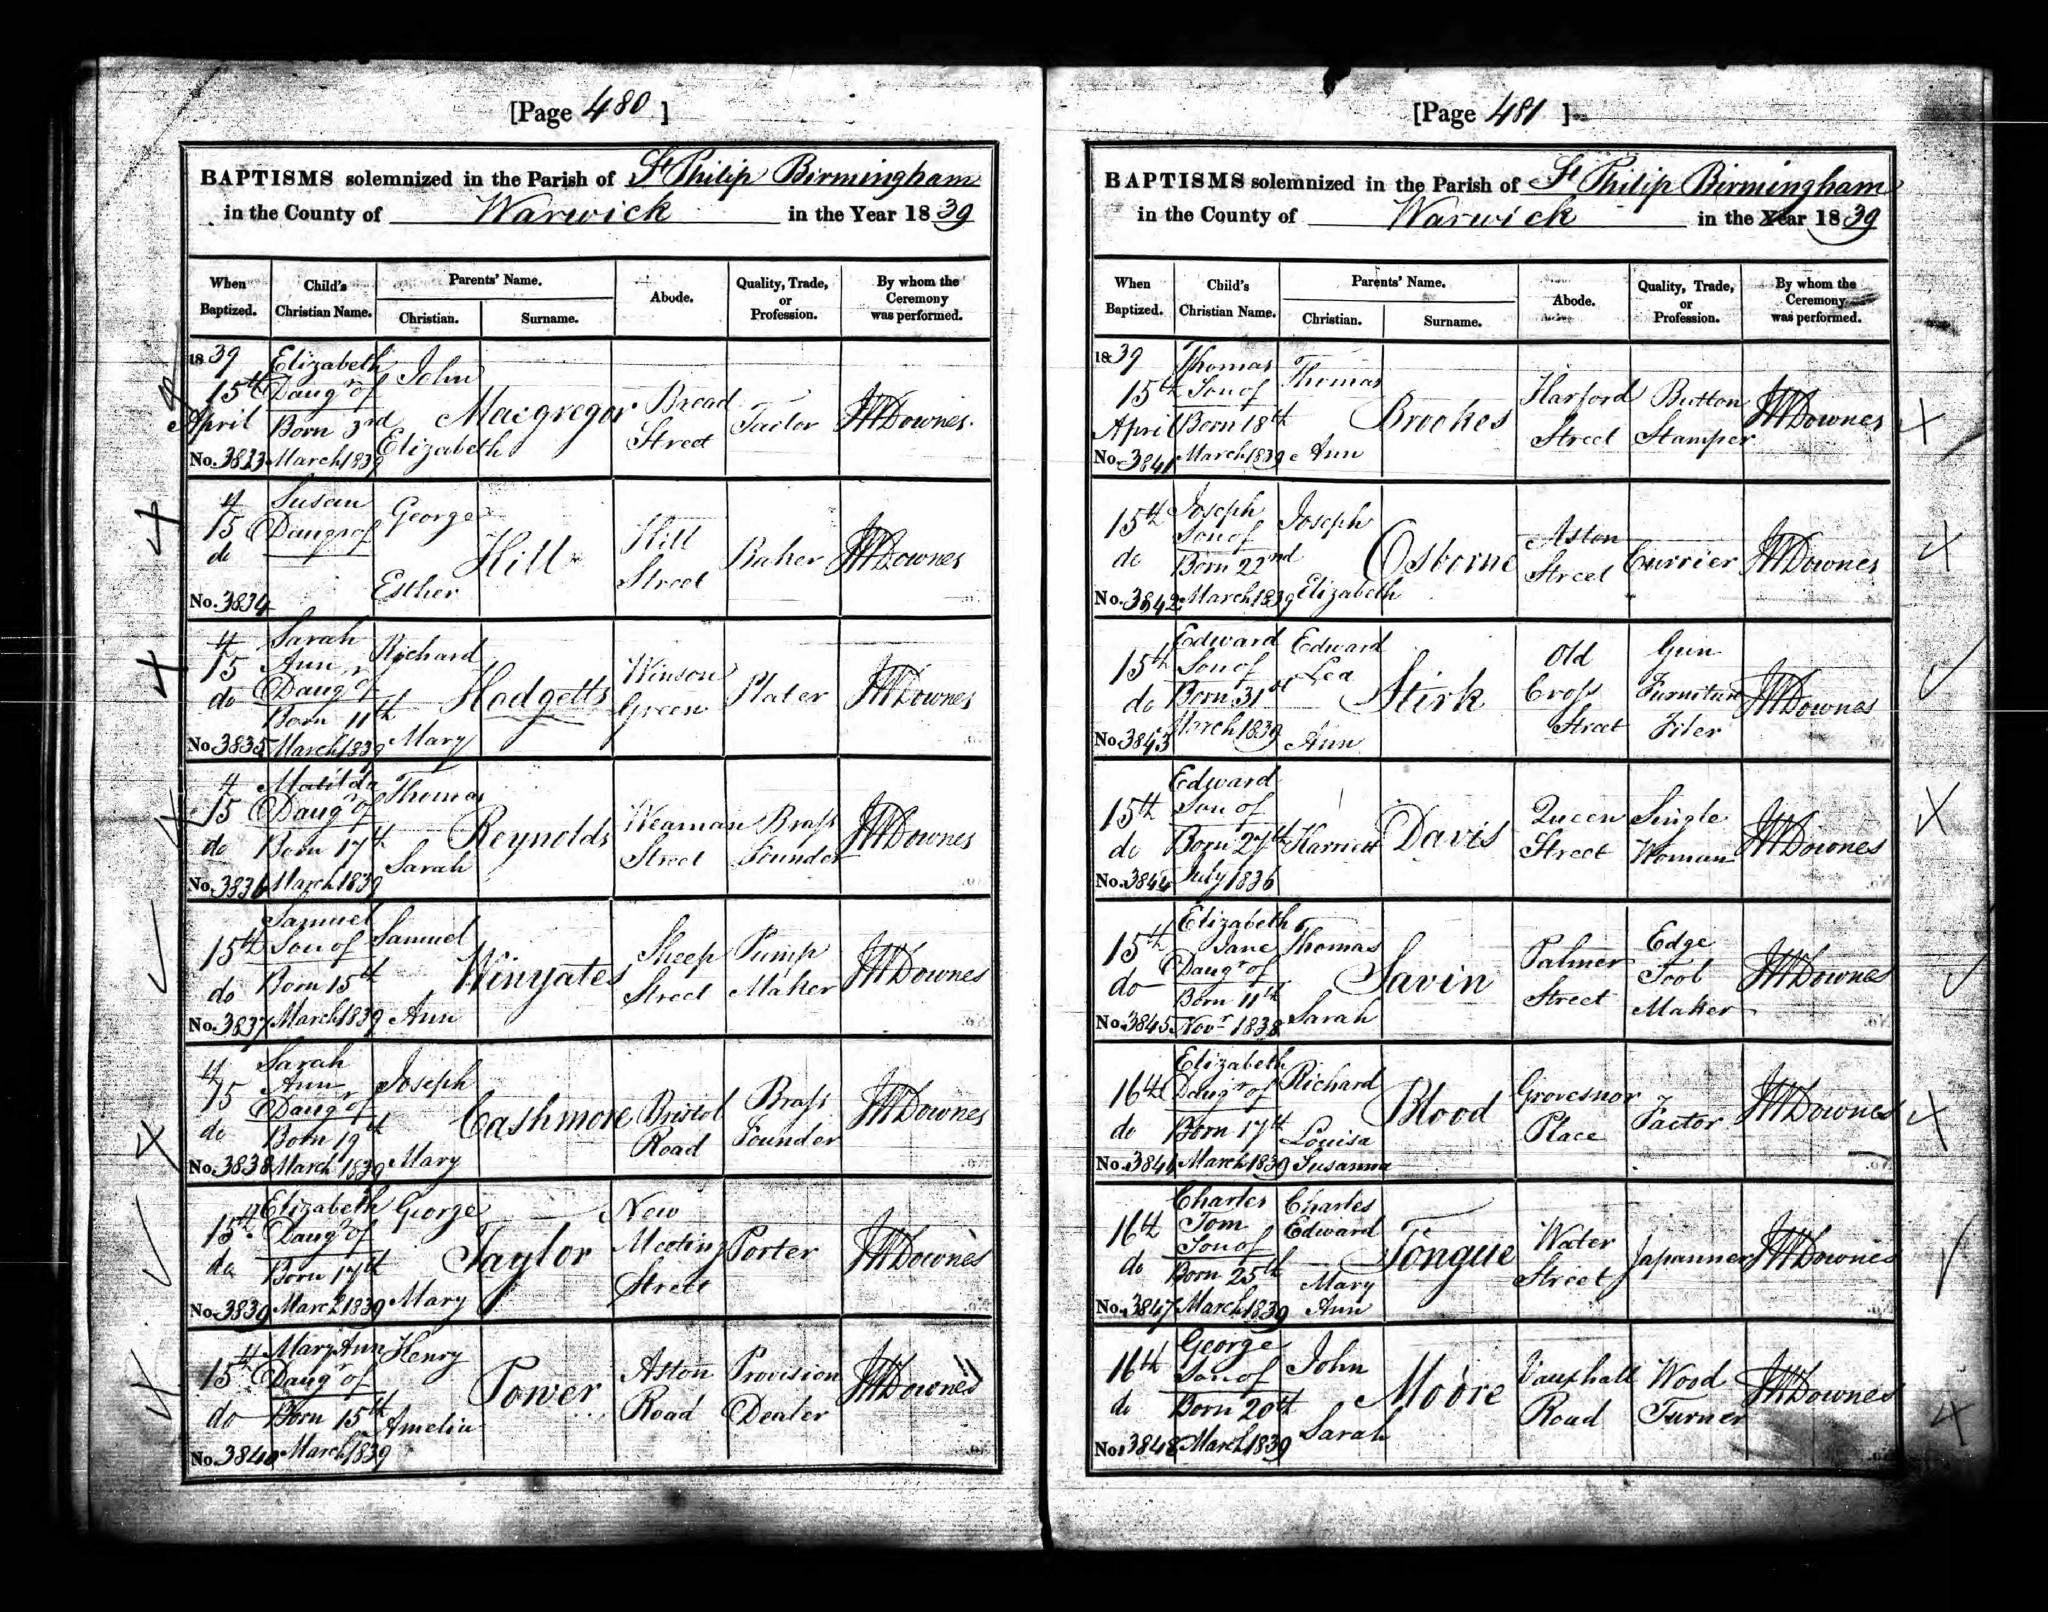 [Page 480]
BAPTISMS solemnized in the Parish of St Philip Birmingham
in the County of Warwick in the Year 1839
When Baptized. Child's Christian Name. Parents' Name. Christian. Surname. Abode. Quality, Trade, or Profession. By whom the Ceremony was performed.
1839
15th April
No. 3833
Elizabeth
Daugr of
Born 3rd
March 1839
John
Elizabeth
Macgregor
Broad
Street
Tailor
JWDownes
15
do
No. 3834
Susan
Daugr of
George
Esther
Hill
Hill
Street
Baker
JWDownes
15
do
No. 3835
Sarah
Ann
Daugr of
Born 11th
March 1839
Richard
Mary
Hodgetts
Winson
Green
Plater
JWDownes
15
do
No. 3836
Matilda
Daugr of
Born 17th
March 1839
Thomas
Sarah
Reynolds
Weaman
Street
Brass
Founder
JWDownes
15th
do
No. 3837
Samuel
Son of
Born 15th
March 1839
Samuel
Ann
Winyates
Sheep
Street
Pump
Maker
JWDownes
15
do
No. 3838
Sarah
Ann
Daugr of
Born 19th
March 1839
Joseph
Mary
Cashmore
Bristol
Road
Brass
Founder
JWDownes
15th
do
No. 3839
Elizabeth
Daugr of
Born 17th
March 1839
George
Mary
Taylor
New
Meeting
Street
Porter
JWDownes
15th
do
No. 3840
Mary Ann
Daugr of
Born 15th
March 1839
Henry
Amelia
Power
Aston
Road
Provision
Dealer
JWDownes
[Page 481]
BAPTISMS solemnized in the Parish of St Philip Birmingham
in the County of Warwick in the Year 1839
When Baptized. Child's Christian Name. Parents' Name. Christian. Surname. Abode. Quality, Trade, or Profession. By whom the Ceremony was performed.
1839
15th
April
No. 3841
Thomas
Son of
Born 18th
March 1839
Thomas
Ann
Brookes
Harford
Street
Button
Stamper
JWDownes
15th
do
No. 3842
Joseph
Son of
Born 22nd
March 1839
Joseph
Elizabeth
Osborne
Aston
Street
Currier
JWDownes
15th
do
No. 3843
Edward
Son of
Born 31st
March 1839
Edward
Lea
Ann
Stirk
Old
Cross
Street
Gun
Furniture
Filer
JWDownes
15th
do
No. 3844
Edward
Son of
Born 27th
July 1836
Harriett
Davis
Queen
Street
Single
Woman
JWDownes
15th
do
No. 3845
Elizabeth
Jane
Daugr of
Born 11th
Novr 1838
Thomas
Sarah
Savin
Palmer
Street
Edge
Tool
Maker
JWDownes
16th
do
No. 3846
Elizabeth
Daugr of
Born 17th
March 1839
Richard
Louisa
Susanna
Blood
Grovesnor
Place
Factor
JWDownes
16th
do
No. 3847
Charles
Tom
Son of
Born 25th
March 1839
Charles
Edward
Mary
Ann
Tongue
Water
Street
Japanner
JWDownes
16th
do
No. 3848
George
Son of
Born 20th
March 1839
John
Sarah
Moore
Vauxhall
Road
Wood
Turner
JWDownes